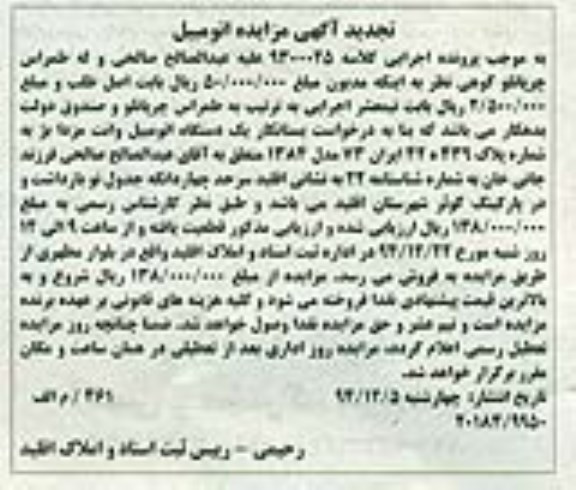 تجدید آگهی مزایده اتومبیل
به موجب پرونده اجرایی کلاسه ۹۳۰۰۰۲۵ علیه عبدالصالح صالحی و له طمراس
چریانلو گوهی نظر به اینکه مدیون مبلغ ۵۰/۰۰۰/۰۰۰ ریال بابت اصل طلب و مبلغ
۲/۵۰۰/۰۰۰ ریال بابت نیمعشر اجرایی به ترتیب به طمراس چریانلو و صندوق دولت
بدهکار می باشد که بنا به درخواست بستانکار یک دستگاه اتومبیل وانت مزدا بژ به
شماره پلاک ۴۳۹ ه ۴۴ ایران ۷۳ مدل ۱۳۸۴ متعلق به آقای عبدالصالح صالحی فرزند
جانی خان به شماره شناسنامه ۲۲ به نشانی اقلید سرحد چهاردانگه جدول نو بازداشت و
در پارکینگ کوثر شهرستان اقلید می باشد و طبق نظر کارشناس رسمی به مبلغ
۱۳۸/۰۰۰/۰۰۰ ریال ارزیابی شده و ارزیابی مذکور قطعیت یافته و از ساعت ۹ الی ۱۲
روز شنبه مورخ ۹۴/۱۲/۲۲ در اداره ثبت اسناد و املاک اقلید واقع در بلوار مطهری از
طریق مزایده به فروش می رسد. مزایده از مبلغ ۱۳۸/۰۰۰/۰۰۰ ریال شروع و به
بالاترین قیمت پیشنهادی نقدا فروخته می شود و کلیه هزینه های قانونی بر عهده برنده
مزایده است و نیم عشر و حق مزایده نقدا وصول خواهد شد. ضمنا چنانچه روز مزایده
تعطیل رسمی اعلام گردد، مزایده روز اداری بعد از تعطیلی در همان ساعت و مکان
مقرر برگزار خواهد شد.
تاریخ انتشار: چهارشنبه ۹۴/۱۲/۵ ۴۶۱ / م الف
۲۰۱۸۴/۹۹۵۰
رحیمی - رییس ثبت اسناد و املاک اقلید